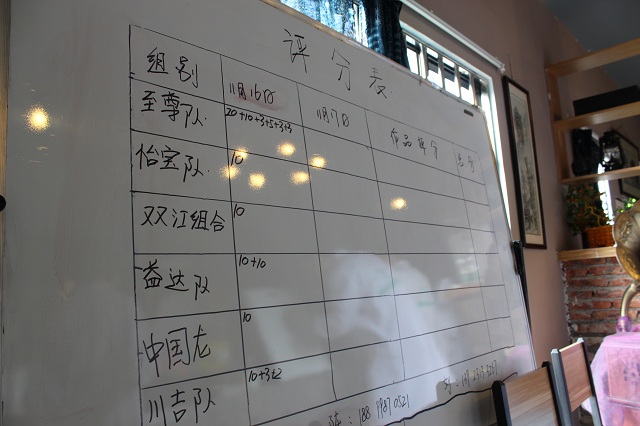 评分表
组别 11月16日 11月17日 作品得分 总分
至尊队 20+10+3+5+3+3
怡宝队 10
双江组合 10
益达队 10+10
中国龙 10
川吉队 10+3+2